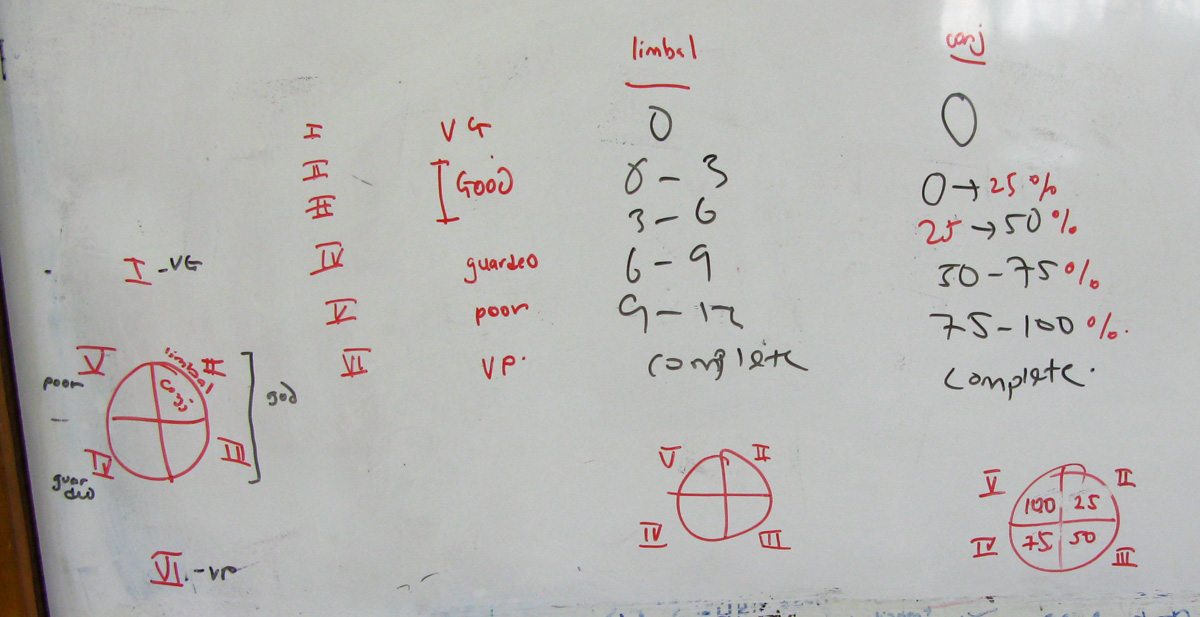 limbal conj
I VG 0 0
II Good 0 - 3 0 → 25%
III 3 - 6 25 → 50%
IV guarded 6 - 9 50 - 75%
V poor 9 - 12 75 - 100%.
VI VP. complete complete.
I - VG
V limbal II
poor conj god
IV III
guar
ded
VI. - VP
V II
IV III
V II
100 25
IV 75 50 III